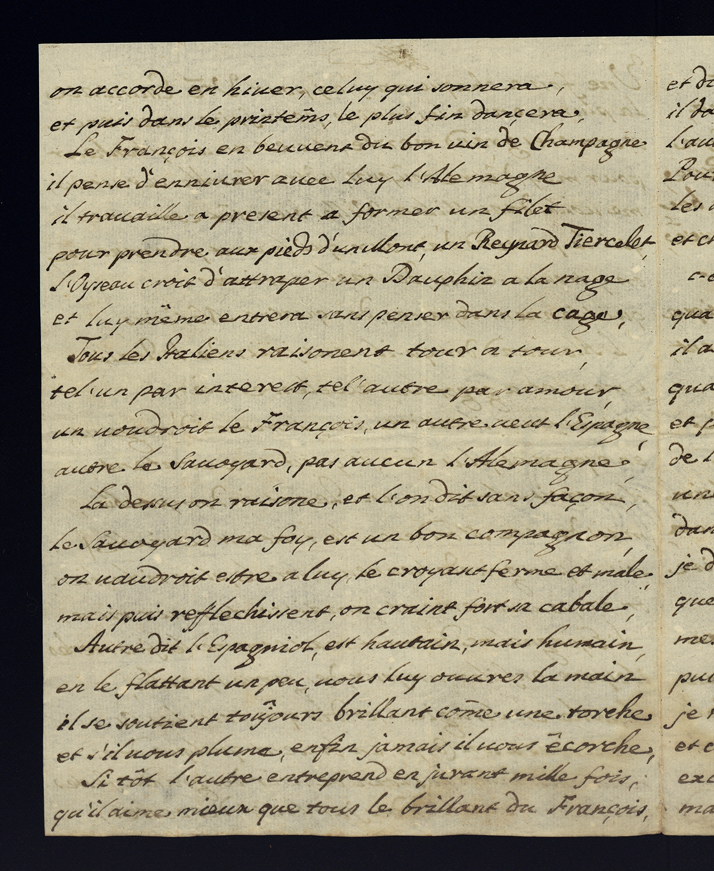 on accorde en hiver, celuy qui sonnera,
et puis dans le printem̃s, le plus fin dançera,
Le François en beuvent du bon vin de Champagne
il pense d'ennivrer avec luy l'Alemagne
il travaille a present a former un filet
pour prendre aux pieds d'un , un Reynard Tiercelet,
l'Oyseau croit d'attraper un Dauphin a la nage
et luy même entrera sans penser dans la cage,
Tous les Italiens raisonent tour a tour,
tel'un par interest, tel'autre par amour,
un voudroit le François, un autre veut l'Espagne,
autre le Savoyard, pas aucun l'Alemagne,
La desus on raisone, et l'on dit sans façon,
Le Savoyard ma foy, est un bon compagnon,
on vaudroit estre a luy, le croyant ferme et male,
mais puis reflechissent, on craint fort sa cabale,
Autre dit l'Espagniol, est hautain, mais humain,
en le flattant un peu, vous luy ouvres la main
il se soutient toujours brillant com̃e une torche
et s'il vous plume, enfin jamais il vous êcorche,
Si tôt l'autre entreprend en jurant mille fois,
qu'il aime mieux que tous le brillant du François,